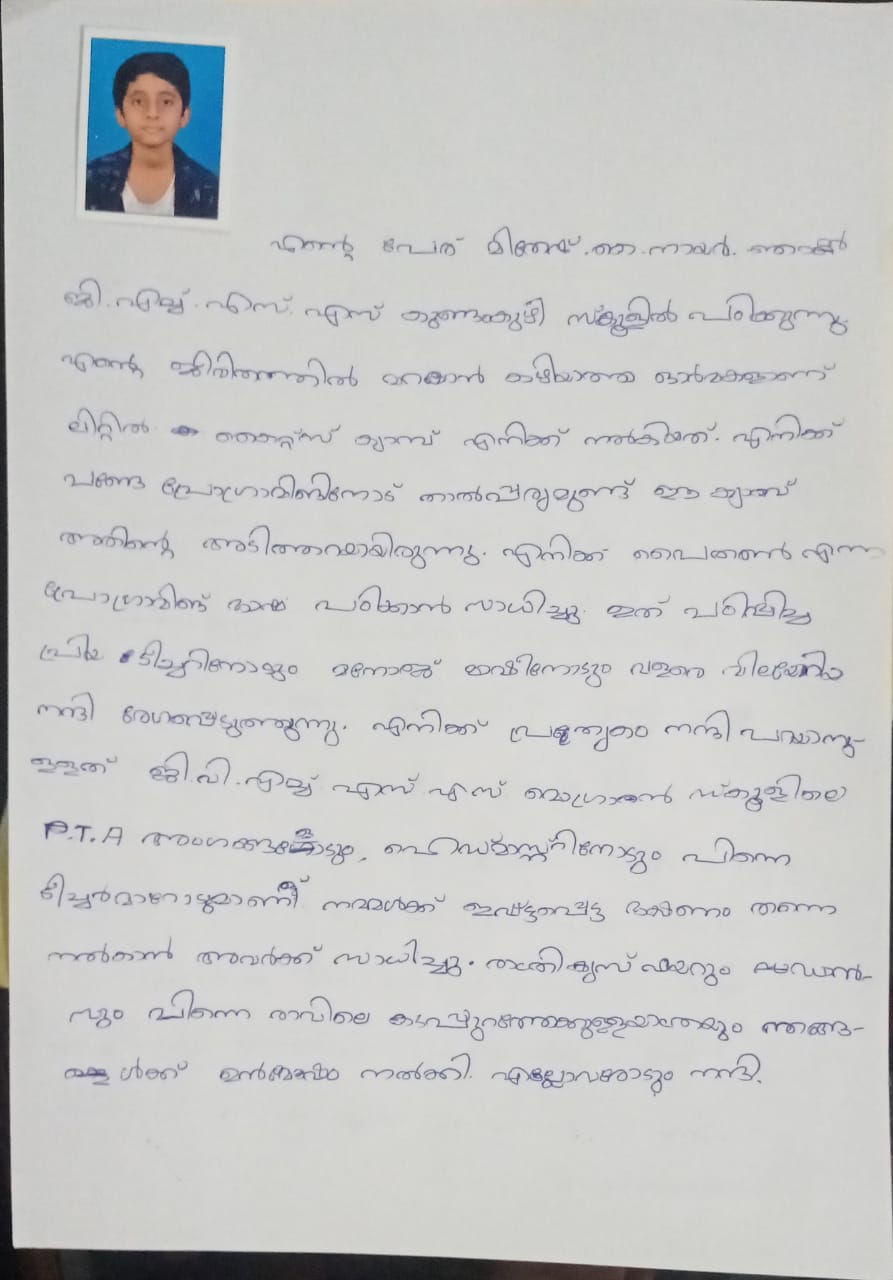 എന്റെ പേര് മിഥേഷ്.കെ.നായർ. ഞാൻ
ജി.എച്ച്.എസ്.എസ് കുണ്ടംകുഴി സ്കൂളിൽ പഠിക്കുന്നു.
എന്റെ ജീവിതത്തിൽ മറക്കാൻ കഴിയാത്ത ഓർമകളാണ്
ലിറ്റിൽ കൈറ്റ്സ് ക്യാമ്പ് എനിക്ക് നൽകിയത്. എനിക്ക്
പണ്ടേ പ്രോഗ്രാമിങിനോട് താൽപ്പര്യമുണ്ട് ഈ ക്യാമ്പ്
അതിന്റെ അടിത്തറയായിരുന്നു. എനിക്ക് പൈതൺ എന്ന
പ്രോഗ്രാമിങ് ഭാഷ പഠിക്കാൻ സാധിച്ചു. ഇത് പഠിപ്പിച്ച
പ്രിയ ടീച്ചറിനോടും മനോജ് മാഷിനോടും വളരെ വിലയേറിയ
നന്ദി രേഖപ്പെടുത്തുന്നു. എനിക്ക് പ്രത്യേകം നന്ദി പറയാനു-
ള്ളത് ജി.വി.എച്ച് എസ്.എസ് മൊഗ്രാൽ സ്കൂളിലെ
P.T.A അംഗങ്ങളോടും, ഹെഡ്മാസ്റ്ററിനോടും പിന്നെ
ടീച്ചർമാറോടുമാണ്. നമ്മൾക്ക് ഇഷ്ട്ടപ്പെട്ട ഭക്ഷണം തന്നെ
നൽകാൻ അവർക്ക് സാധിച്ചു. രാത്രി ക്യാമ്പ് ഫയറും ഡാൻ-
സും പിന്നെ രാവിലെ കടപ്പുറത്തേക്കുള്ളയാത്രയും ഞങ്ങ-
ൾക്ക് ഉൻമേഷം നൽക്കി. എല്ലാവരോടും നന്ദി.